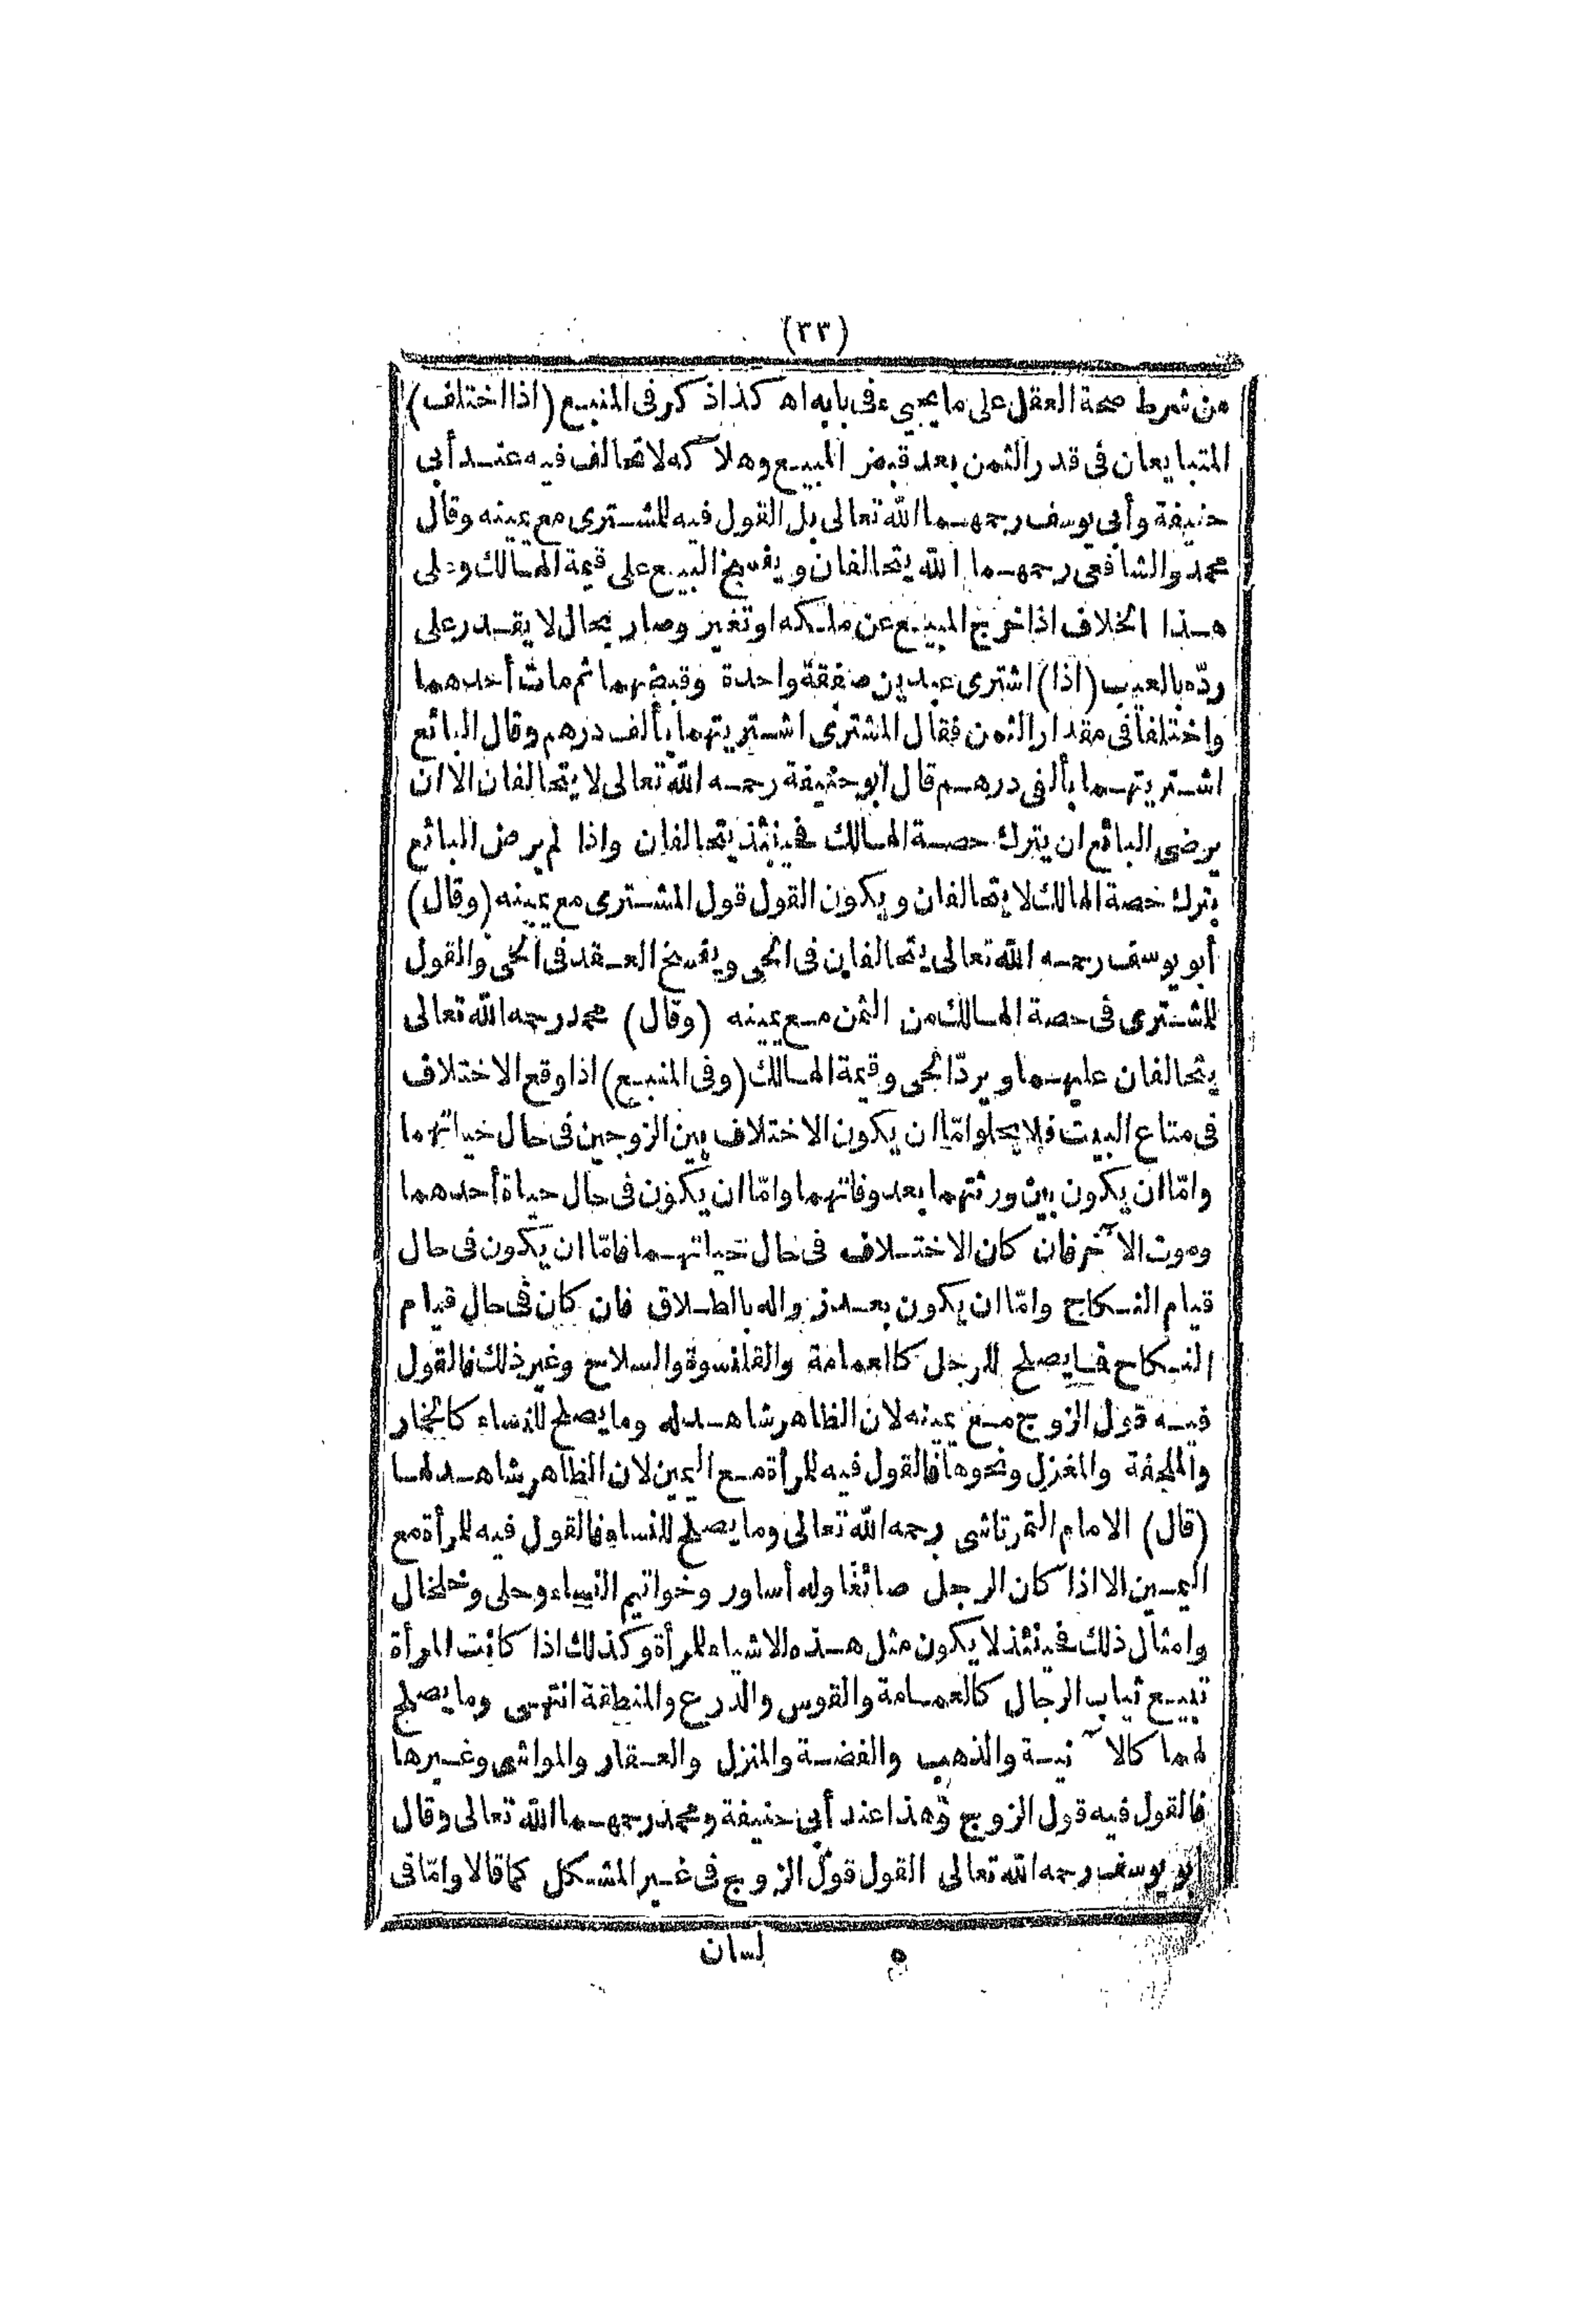 (٣٣)
من شرط صحة العقل على ما يجىء فى بابه اه كذا ذكر فى المنبع (اذا اختلف)
المتبايعان فى قدر الثمن بعد قبض المبيع وهلاكه لا تحالف فيه عند أبى
حنيفة وأبى يوسف رحمهما الله تعالى بل القول فيه للمشترى مع يمينه وقال
محمد والشافعى رحمهما الله يتحالفان ويفسخ البيع على قيمة الهالك وعلى
هذا الخلاف اذا خرج المبيع عن ملكه او تغير وصار بحال لا يقدر على
ردّه بالعيب (اذا) اشترى عبدين صفقة واحدة وقبضهما ثم مات أحدهما
واختلفا فى مقدار الثمن فقال المشترى اشتريتهما بألف درهم وقال البائع
اشتريتهما بألفى درهم قال أبو حنيفة رحمه الله تعالى لا يتحالفان الا ان
يرضى البائع ان يترك حصة الهالك فحينئذ يتحالفان واذا لم يرض البائع
بترك حصة الهالك لا يتحالفان ويكون القول قول المشترى مع يمينه (وقال)
أبو يوسف رحمه الله تعالى يتحالفان فى الحى ويفسخ العقد فى الحى والقول
للمشترى فى حصة الهالك من الثمن مع يمينه (وقال) محمد رحمه الله تعالى
يتحالفان عليهما ويردّ الحى وقيمة الهالك (وفى المنبع) اذا وقع الاختلاف
فى متاع البيت فلا يخلو امّا ان يكون الاختلاف بين الزوجين فى حال حياتهما
وامّا ان يكون بين ورثتهما بعد وفاتهما وامّا ان يكون فى حال حياة أحدهما
وموت الآخر فان كان الاختلاف فى حال حياتهما فامّا ان يكون فى حال
قيام النكاح وامّا ان يكون بعد زواله بالطلاق فان كان فى حال قيام
النكاح فما يصلح للرجل كالعمامة والقلنسوة والسلاح وغير ذلك فالقول
فيه قول الزوج مع يمينه لان الظاهر شاهد له وما يصلح للنساء كالخمار
والملحفة والمغزل ونحوها فالقول فيه للمرأة مع اليمين لان الظاهر شاهد لها
(قال) الامام التمرتاشى رحمه الله تعالى وما يصلح للنساء فالقول فيه للمرأة مع
اليمين الا اذا كان الرجل صائغا وله أساور وخواتيم النساء وحلى وخلخال
وامثال ذلك فحينئذ لا يكون مثل هذه الاشياء للمرأة وكذلك اذا كانت المرأة
تبيع ثياب الرجال كالعمامة والقوس والدرع والمنطقة انتهى وما يصلح
لهما كالآنية والذهب والفضة والمنزل والعقار والمواشى وغيرها
فالقول فيه قول الزوج وهذا عند أبى حنيفة ومحمد رحمهما الله تعالى وقال
ابو يوسف رحمه الله تعالى القول قول الزوج فى غير المشكل كما قالا وامّا فى
٥ لسان